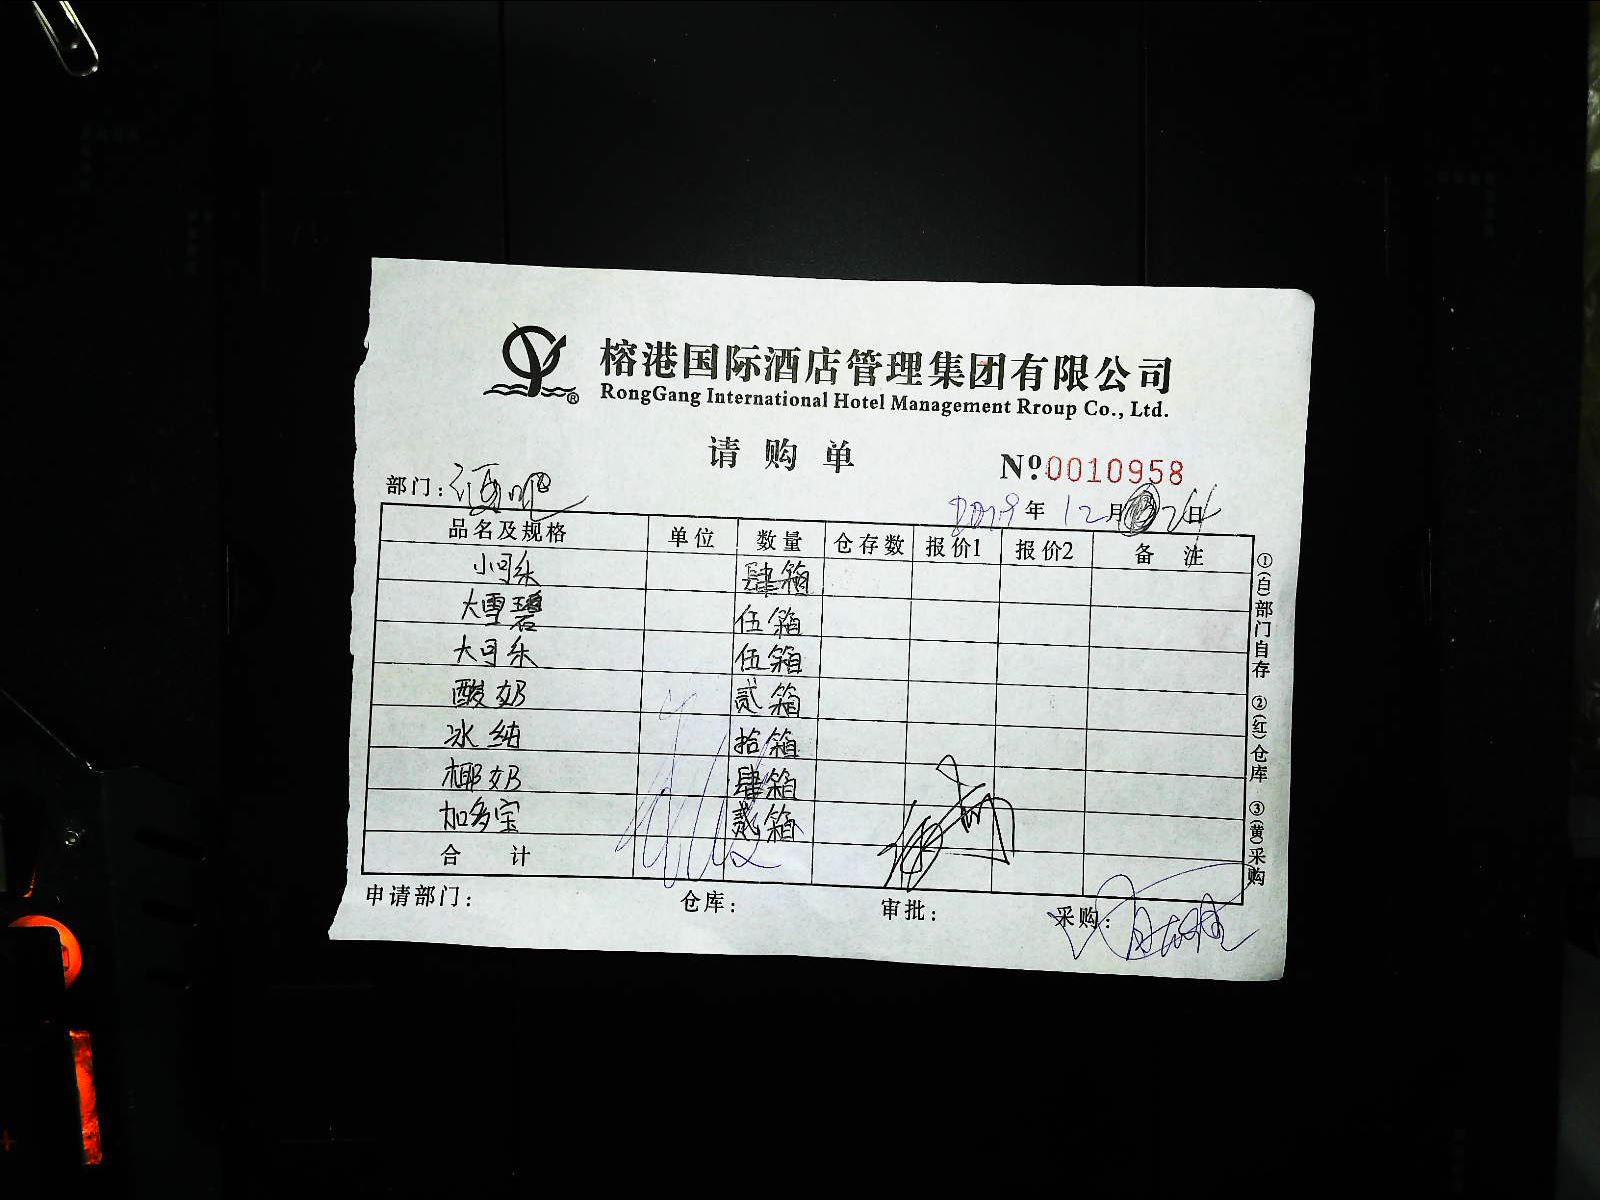 榕港国际酒店管理集团有限公司
RongGang International Hotel Management Rroup Co., Ltd.
请购单
Nº:0010958
部门:酒吧
2019年12月24日
品名及规格 单位 数量 仓存数 报价1 报价2 备注
小可乐 肆箱
大雪碧 伍箱
大可乐 伍箱
酸奶 贰箱
冰纯 拾箱
椰奶 肆箱
加多宝 贰箱
合计
申请部门: 仓库: 审批: 采购:
①(白)部门自存 ②(红)仓库 ③(黄)采购